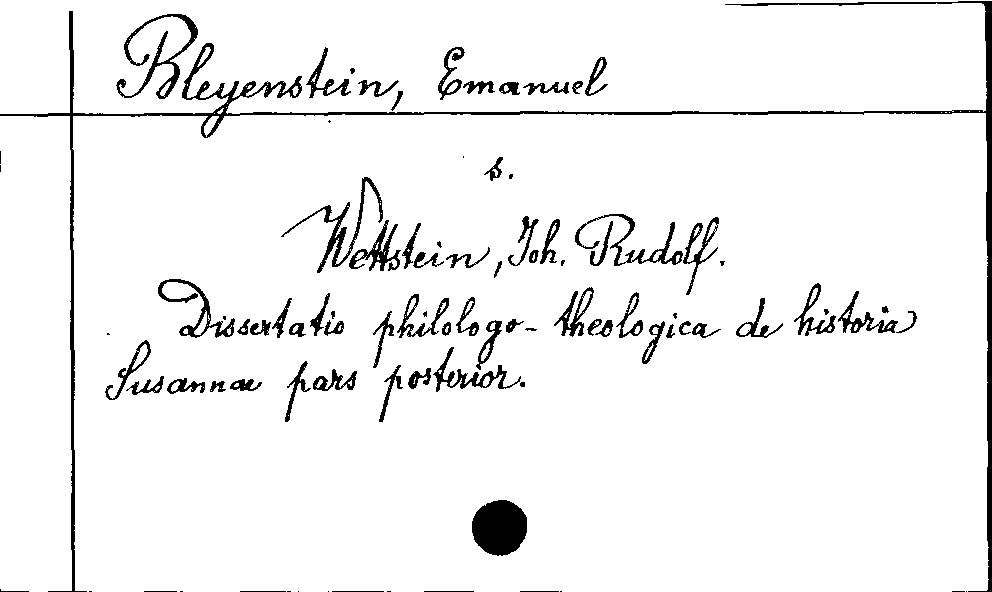 Bleyenstein, Emanuel
s.
Wettstein, Joh. Rudolf.
Dissertatio philologo-theologica de historia
Susannae pars posterior.